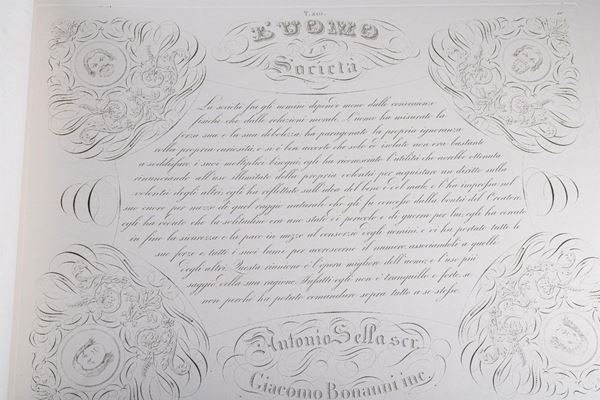 L'UOMO
IN
Società
La società fra gli uomini dipende meno dalle convenienze
fisiche che dalle relazioni morali. L'uomo ha misurato la
forza sua e la sua debolezza, ha paragonato la propria ignoranza
colla propria curiosità; e si è ben accorto che solo ed isolato non era bastante
a soddisfare i suoi moltiplici bisogni; egli ha riconosciuto l'utilità che avrebbe ottenuta
rinunciando all'uso illimitato della propria volontà per acquistare un diritto sulla
volontà degli altri; egli ha riflettuto sull'idea del bene e del male, e l'ha impressa nel
suo cuore per mezzo di quel raggio naturale che gli fu concesso dalla bontà del Creatore
egli ha veduto che la solitudine era uno stato di pericolo e di guerra per lui; egli ha cercato
in fine la sicurezza e la pace in mezzo al consorzio degli uomini, e vi ha portato tutte le
sue forze e tutti i suoi lumi per accrescerne il numero associandoli a quelle
degli altri. Questa riunione è l'opera migliore dell'uomo, e l'uso più
saggio della sua ragione. Infatti egli non è tranquillo e forte se
non perchè ha potuto comandare sopra tutto a se stesso.
Antonio Sella scr.
Giacomo Bonanni inc.